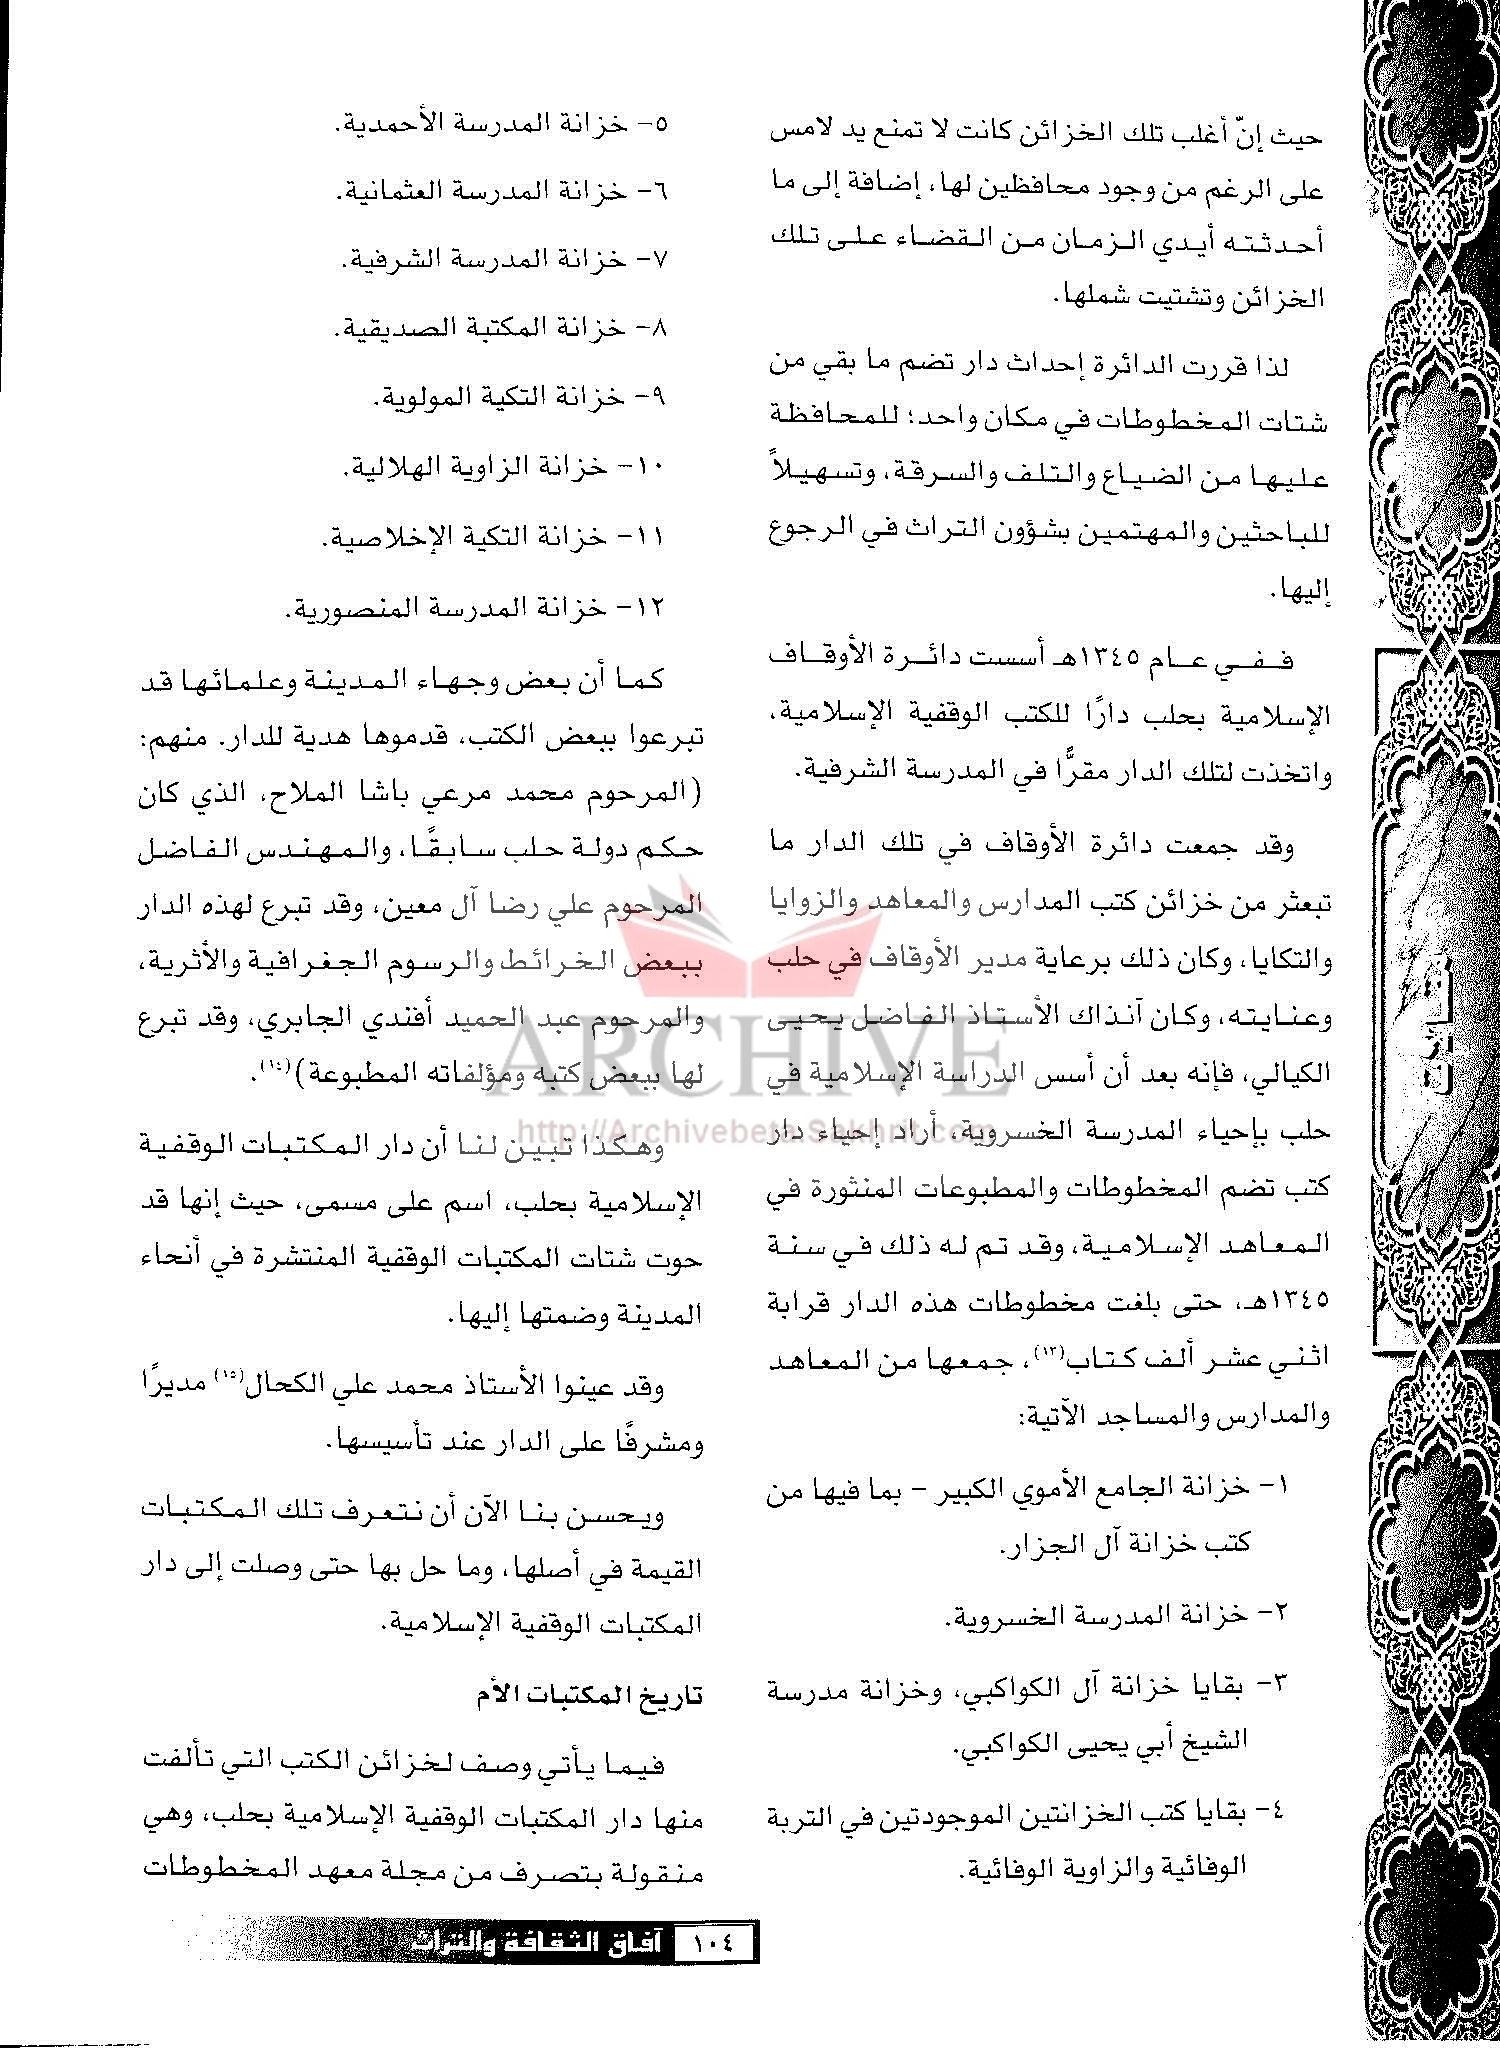 حيث إنّ أغلب تلك الخزائن كانت لا تمنع يد لامس
على الرغم من وجود محافظين لها، إضافة إلى ما
أحدثته أيدي الزمان من القضاء على تلك
الخزائن وتشتيت شملها.
لذا قررت الدائرة إحداث دار تضم ما بقي من
شتات المخطوطات في مكان واحد؛ للمحافظة
عليها من الضياع والتلف والسرقة، وتسهيلاً
للباحثين والمهتمين بشؤون التراث في الرجوع
إليها.
ففي عام ١٣٤٥هـ أسست دائرة الأوقاف
الإسلامية بحلب دارًا للكتب الوقفية الإسلامية،
واتخذت لتلك الدار مقرًّا في المدرسة الشرفية.
وقد جمعت دائرة الأوقاف في تلك الدار ما
تبعثر من خزائن كتب المدارس والمعاهد والزوايا
والتكايا، وكان ذلك برعاية مدير الأوقاف في حلب
وعنايته، وكان آنذاك الأستاذ الفاضل يحيى
الكيالي، فإنه بعد أن أسس الدراسة الإسلامية في
حلب بإحياء المدرسة الخسروية، أراد إحياء دار
كتب تضم المخطوطات والمطبوعات المنثورة في
المعاهد الإسلامية، وقد تم له ذلك في سنة
١٣٤٥هـ، حتى بلغت مخطوطات هذه الدار قرابة
اثني عشر ألف كتاب(١٣)، جمعها من المعاهد
والمدارس والمساجد الآتية:
١- خزانة الجامع الأموي الكبير - بما فيها من
كتب خزانة آل الجزار.
٢- خزانة المدرسة الخسروية.
٣- بقايا خزانة آل الكواكبي، وخزانة مدرسة
الشيخ أبي يحيى الكواكبي.
٤- بقايا كتب الخزانتين الموجودتين في التربة
الوفائية والزاوية الوفائية.
٥- خزانة المدرسة الأحمدية.
٦- خزانة المدرسة العثمانية.
٧- خزانة المدرسة الشرفية.
٨- خزانة المكتبة الصديقية.
٩- خزانة التكية المولوية.
١٠- خزانة الزاوية الهلالية.
١١- خزانة التكية الإخلاصية.
١٢- خزانة المدرسة المنصورية.
كما أن بعض وجهاء المدينة وعلمائها قد
تبرعوا ببعض الكتب، قدموها هدية للدار. منهم:
(المرحوم محمد مرعي باشا الملاح، الذي كان
حكم دولة حلب سابقًا، والمهندس الفاضل
المرحوم علي رضا آل معين، وقد تبرع لهذه الدار
ببعض الخرائط والرسوم الجغرافية والأثرية،
والمرحوم عبد الحميد أفندي الجابري، وقد تبرع
لها ببعض كتبه ومؤلفاته المطبوعة)(١٤).
وهكذا تبين لنا أن دار المكتبات الوقفية
الإسلامية بحلب، اسم على مسمى، حيث إنها قد
حوت شتات المكتبات الوقفية المنتشرة في أنحاء
المدينة وضمتها إليها.
وقد عينوا الأستاذ محمد علي الكحال(١٥) مديرًا
ومشرفًا على الدار عند تأسيسها.
ويحسن بنا الآن أن نتعرف تلك المكتبات
القيمة في أصلها، وما حل بها حتى وصلت إلى دار
المكتبات الوقفية الإسلامية.
تاريخ المكتبات الأم
فيما يأتي وصف لخزائن الكتب التي تألفت
منها دار المكتبات الوقفية الإسلامية بحلب، وهي
منقولة بتصرف من مجلة معهد المخطوطات
١٠٤ آفاق الثقافة والتراث
مقالات
ARCHIVE
http://Archivebeta.Sakhrit.com